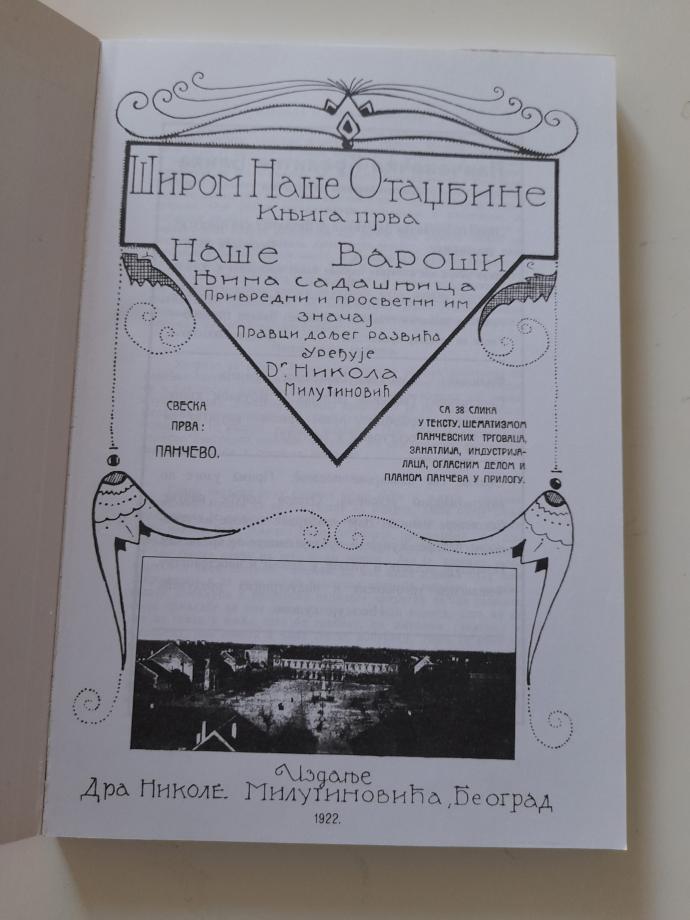 Широм Наше Отаџбине
Књига прва
Наше Вароши
Њина садашњица
Привредни и просветни им
значај
Правци даљег развића
Уређује
Dr. Никола
Милутиновић
СВЕСКА
ПРВА:
ПАНЧЕВО.
СА 38 СЛИКА
У ТЕКСТУ, ШЕМАТИЗМОМ
ПАНЧЕВСКИХ ТРГОВАЦА,
ЗАНАТЛИЈА, ИНДУСТРИЈА-
ЛАЦА, ОГЛАСНИМ ДЕЛОМ И
ПЛАНОМ ПАНЧЕВА У ПРИЛОГУ.
Издање
Дра Николе. Милутиновића, Београд
1922.